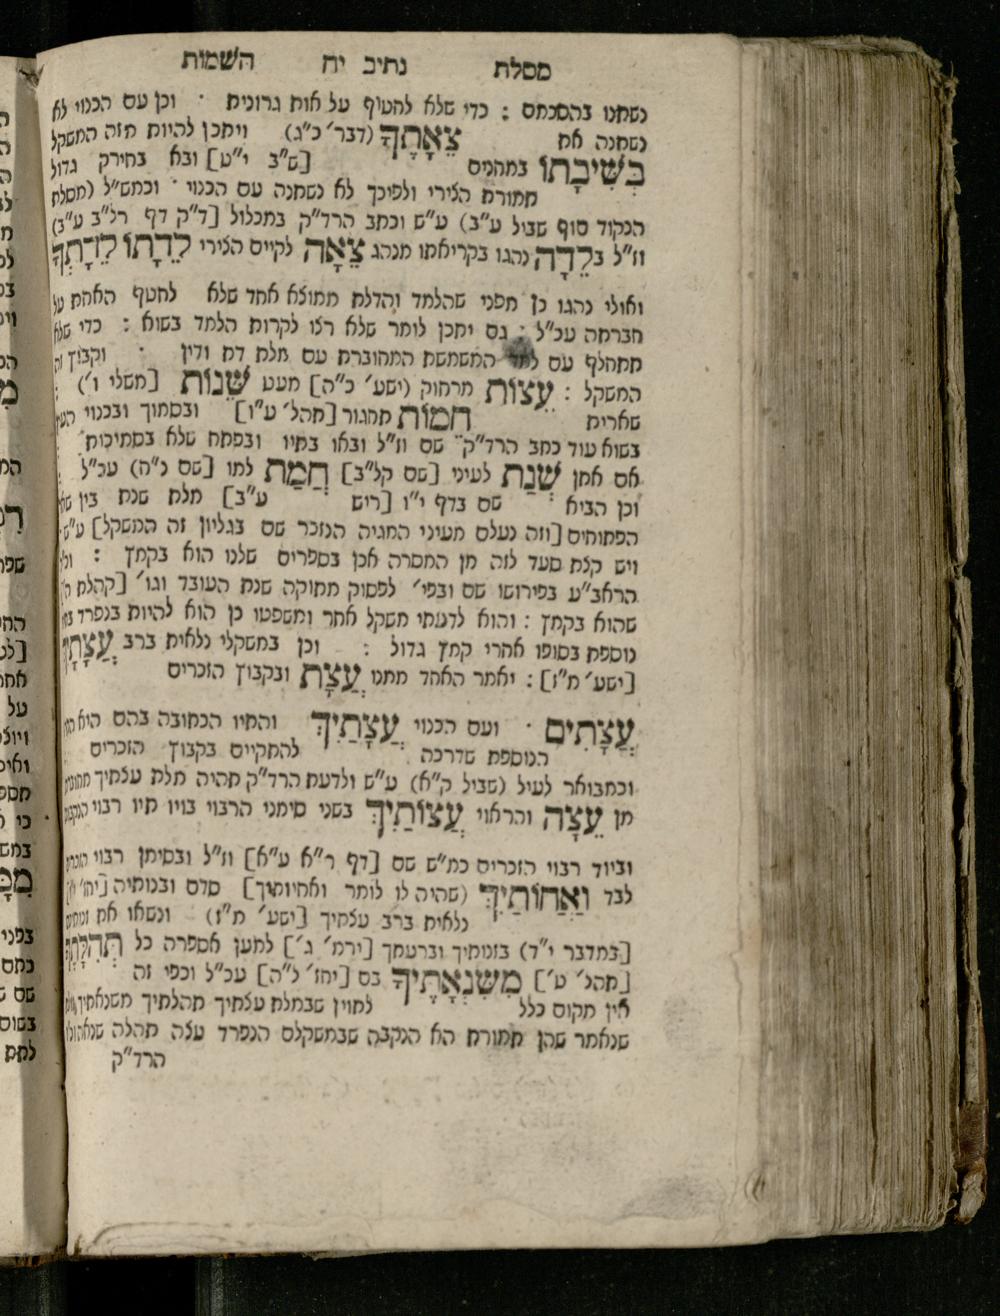 מסלת נתיב יח השמות
נשתנו בהסכמה : כדי שלא להטיף על אות גרונית · וכן עם הכנוי לא
נשתנה את צֵאתְךָ (דבר׳ כ״ג) ויתכן להיות מזה המשקל
בְּשִׁיבָתוֹ במחנים [ש״ב י״ט] ובא בחירק גדול
תמורת הצירי ולפיכך לא נשתנה עם הכנוי · וכמש״ל (מסלת
הנקוד סוף שביל ע״ב) ע״ש וכתב הרד״ק במכלול [ד״ק דף רל״ב ע״ב)
וז״ל בלֵדָה נהגו בקריאתו מנהג צֵאָה לקיים הצירי לֵדָתוֹ לֵדָתְךָ
ואולי נהגו כן מפני שהלמד והדלת ממוצא אחד שלא לחטף האחת על
חברתה עכ״ל : גם יתכן לומר שלא רצו לקרות הלמד בשוא : כדי שלא
תתחלף עם המשמשת המחוברת עם מלת דת ודין · וקבוץ זה
המשקל : עֵצוֹת מרחוק (ישע׳ כ״ה) מעט שֵׁנוֹת [משלי ו׳) :
שארית חֵמוֹת תחגור [תהל׳ ע״ו] ובסמוך ובכנוי
בשוא עוד כתב הרד״ק שם וז״ל ובאו בתיו ובפתח שלא בסמיכות
אם אתן שְׁנַת לעיני [שם קל״ב] חֲמַת למו [שם נ״ה) עכ״ל :
וכן הביא שם בדף י״ו [ריש ע״ב] מלת שנת בין
הפתוחים [וזה נעלם מעיני המגיה הנזכר שם בגליון זה המשקל] ע״ש
ויש קצת סעד לזה מן המסרה אכן בספרים שלנו הוא בקמץ :
הראב״ע בפירושו שם ובפי׳ לפסוק מתוקה שנת העובד וגו׳ [קהלת
שהוא בקמץ : והוא לדעתי משקל אחר ומשפטו כן הוא להיות בנפרד
נוספת בסופו אחרי קמץ גדול : וכן במשקלי נלאית ברב עֲצָתָיִךְ
[ישע׳ מ״ז] : יאמר האחד ממנו עֲצָת ובקבוץ הזכרים
עֲצָתִים · ועם הכנוי עֲצָתַיִךְ והתיו הכתובה בהם היא
הנוספת שדרכה להתקיים בקבוץ הזכרים
וכמבואר לעיל (שביל ק״א) ע״ש ולדעת הרד״ק תהיה מלת עצתיך
מן עֵצָה והראוי עֲצוֹתַיִךְ בשני סימני הרבוי בויו תיו רבוי הנקבות
וביוד רבוי הזכרים כמ״ש שם [דף ר״א ע״א] וז״ל ובסימן רבוי
לבד וַאֲחוֹתַיִךְ (שהיה לו לומר ואחיותיך] סדם ובנותיה [יחז׳
נלאית ברב עצתיך [ישע׳ מ״ז) ונשאו את
[במדבר י״ד) בזנותיך וברעתך [ירמ׳ ג׳] למען אספרה כל תְּהִלָּתֶיךָ
[תהל׳ ט׳] מִשִּׂנְאָתֶיךָ בם [יחז׳ ל״ה] עכ״ל וכפי זה
אין מקום כלל לתוין שבמלת עצתיך תהלתיך משנאתיך
שנאמר שהן תמורת הא הנקבה שבמשקלם הנפרד עצה תהלה
הרד״ק